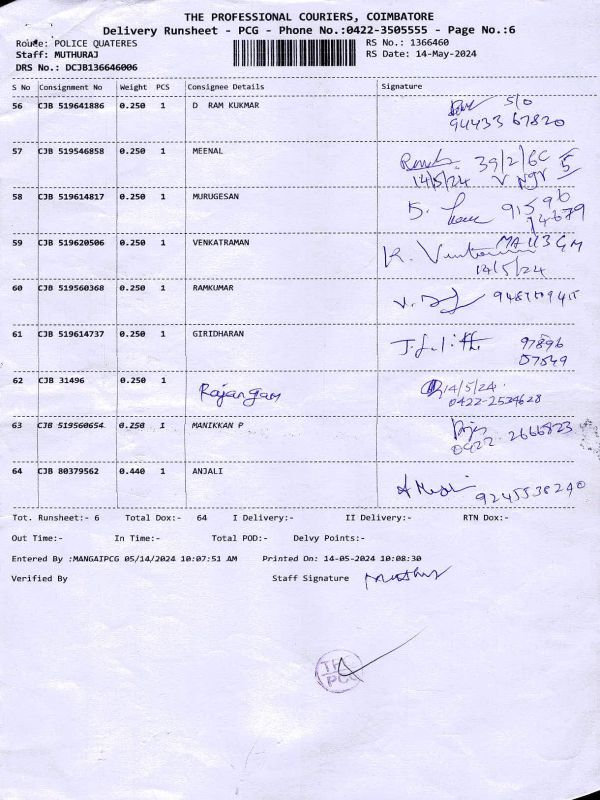 THE PROFESSIONAL COURIERS, COIMBATORE
Delivery Runsheet - PCG - Phone No.:0422-3505555 - Page No.:6
Route: POLICE QUATERES RS No.: 1366460
Staff: MUTHURAJ RS Date: 14-May-2024
DRS No.: DCJB136646006
S No Consignment No Weight PCS Consignee Details Signature
56 CJB 519641886 0.250 1 D RAM KUKMAR S/O
94433 67820
57 CJB 519546858 0.250 1 MEENAL 39/2/6C 5
14/5/24 V NGR
58 CJB 519614817 0.250 1 MURUGESAN 91596
74679
59 CJB 519620506 0.250 1 VENKATRAMAN K.
14/5/24
60 CJB 519560368 0.250 1 RAMKUMAR V.
61 CJB 519614737 0.250 1 GIRIDHARAN 97896
57549
62 CJB 31496 0.250 1 Rajangam 14/5/24
0422-2534628
63 CJB 519560654 0.250 1 MANIKKAN P
0422 2666823
64 CJB 80379562 0.440 1 ANJALI
9245538240
Tot. Runsheet:- 6 Total Dox:- 64 I Delivery:- II Delivery:- RTN Dox:-
Out Time:- In Time:- Total POD:- Delvy Points:-
Entered By :MANGAIPCG 05/14/2024 10:07:51 AM Printed On: 14-05-2024 10:08:30
Verified By Staff Signature
TPC
PCG